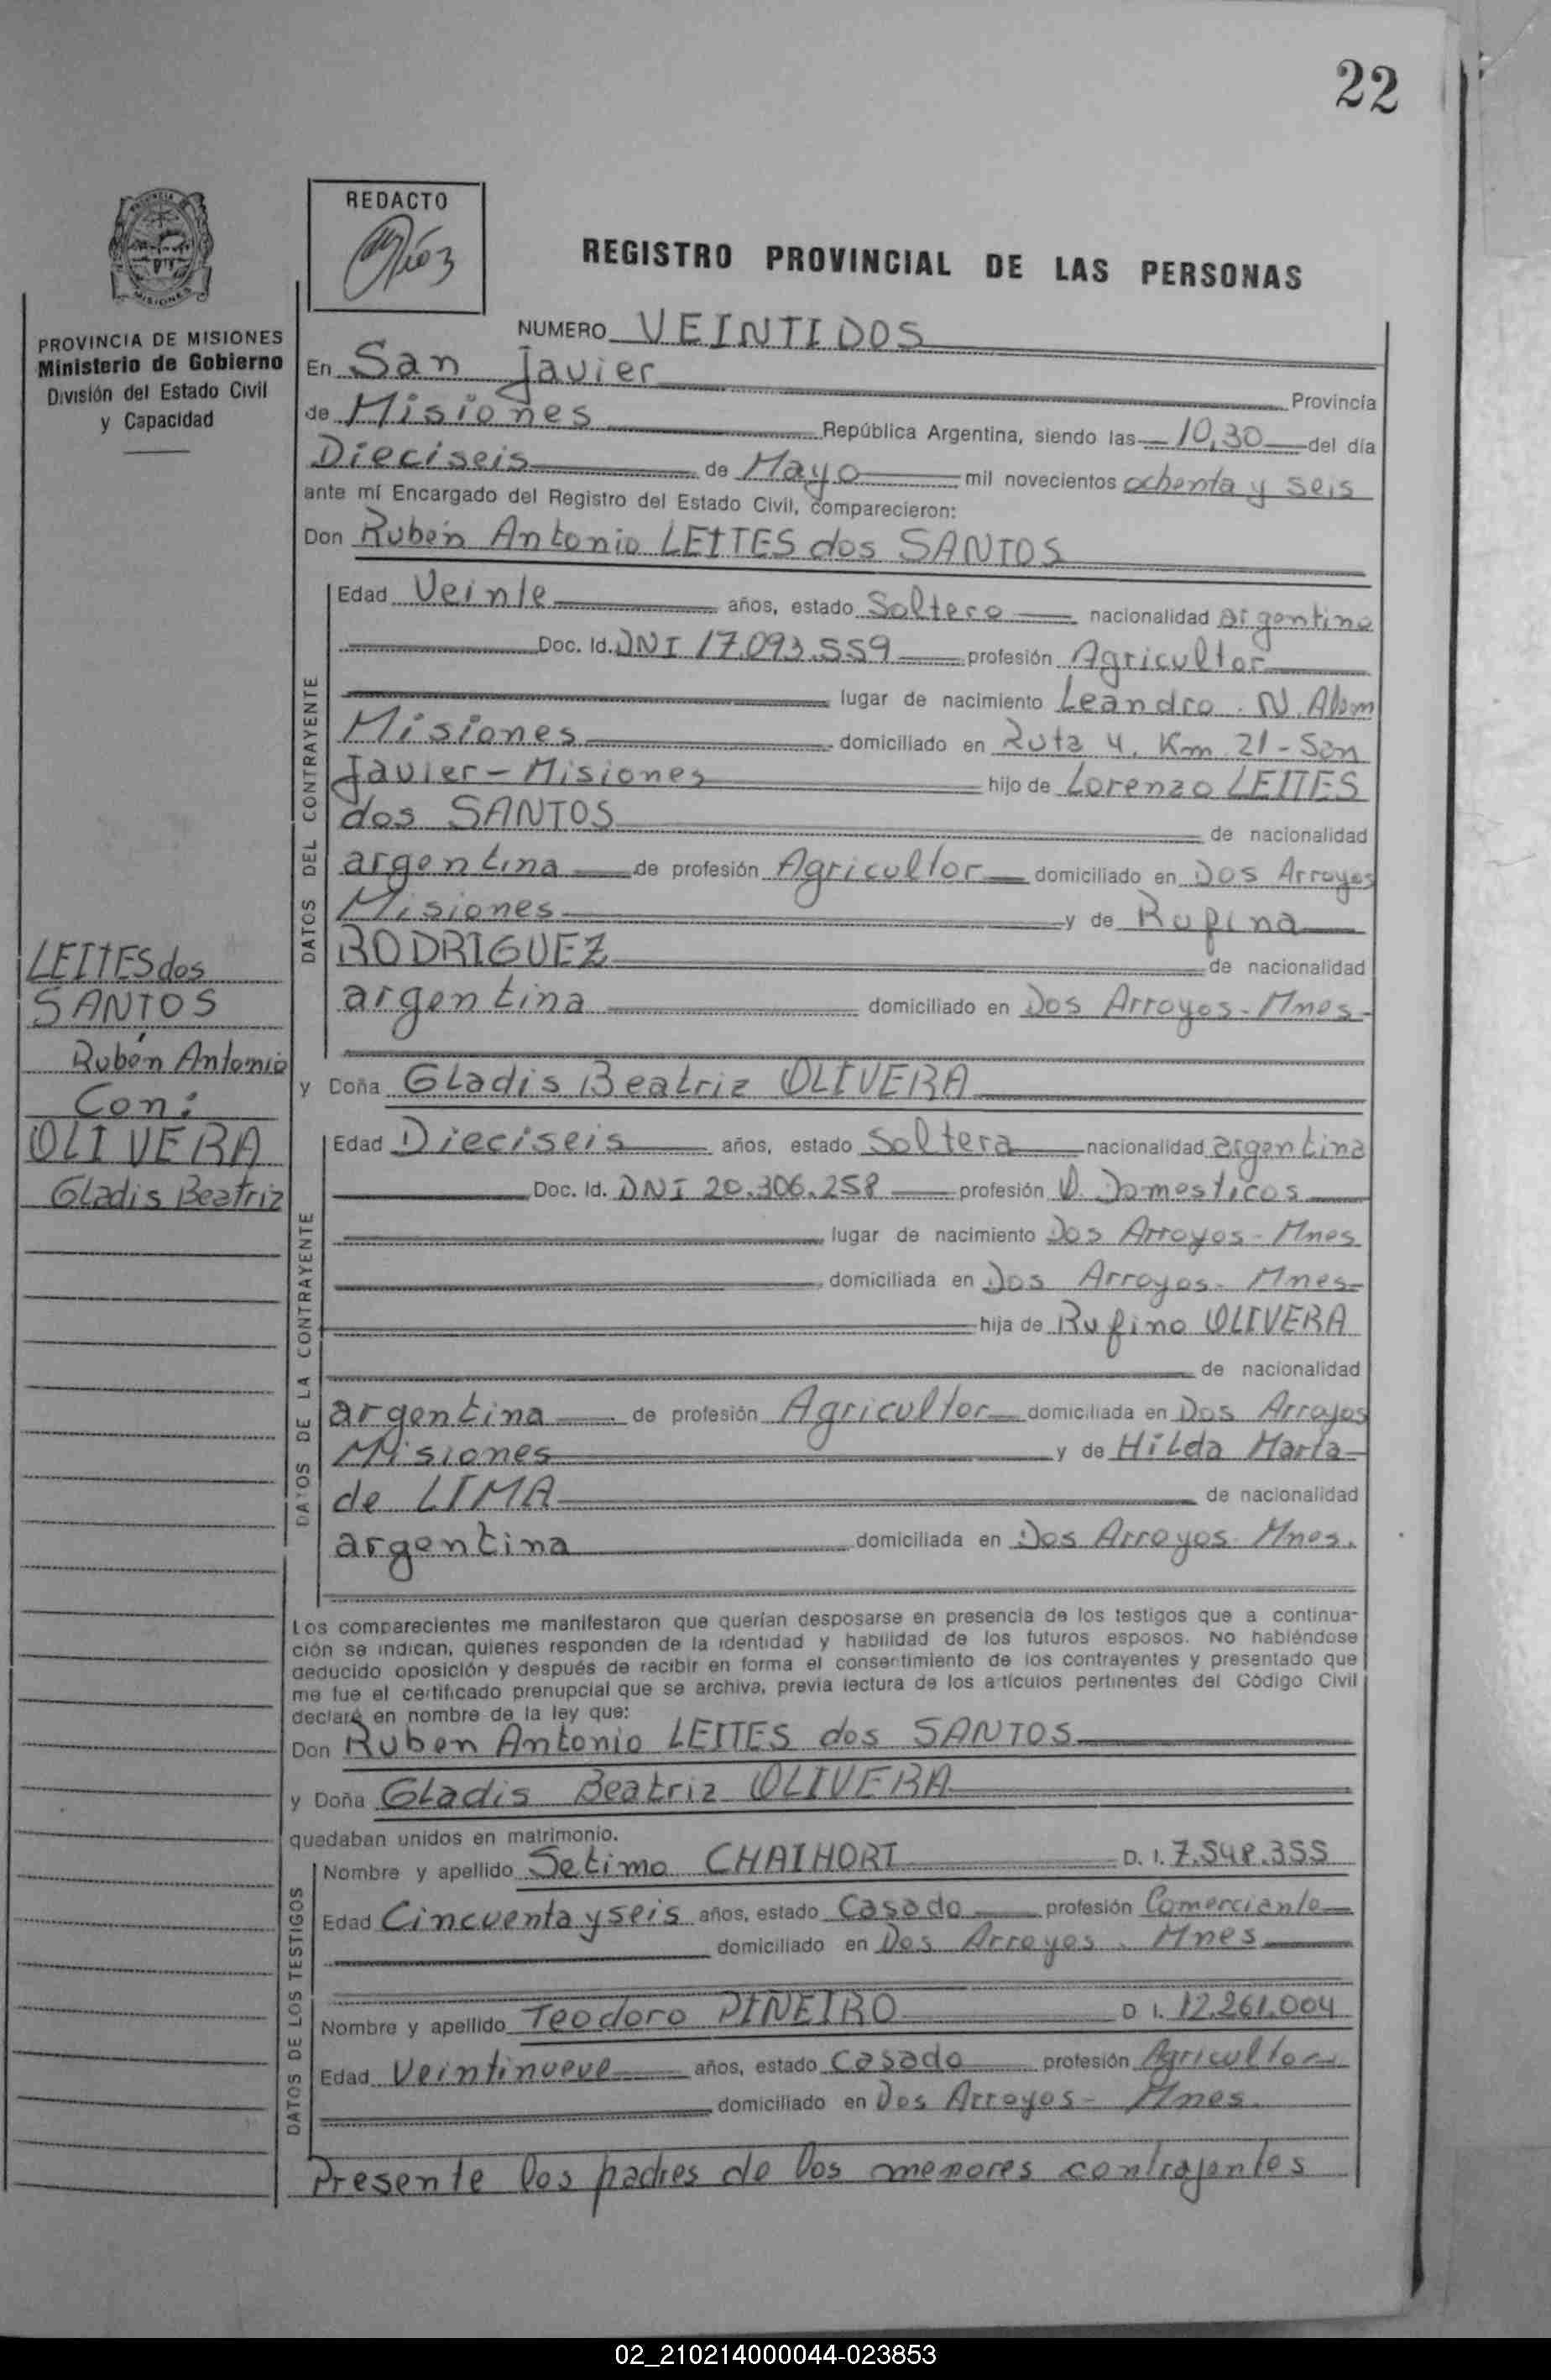 22
REDACTO
REGISTRO PROVINCIAL DE LAS PERSONAS
PROVINCIA DE MISIONES
Ministerio de Gobierno
División del Estado Civil
y Capacidad
NUMERO VEINTIDOS
En San Javier Provincia
de Misiones República Argentina, siendo las 10,30 del día
Dieciseis de Mayo mil novecientos ochenta y seis
ante mí Encargado del Registro del Estado Civil, comparecieron:
Don Rubén Antonio LEITES dos SANTOS
DATOS DEL CONTRAYENTE
Edad Veinte años, estado Soltero nacionalidad argentina
Doc. Id. DNI 17.093.559 profesión Agricultor
lugar de nacimiento Leandro N. Alem
Misiones domiciliado en Ruta 4. Km 21 - San
Javier - Misiones hijo de Lorenzo LEITES
dos SANTOS de nacionalidad
argentina de profesión Agricultor domiciliado en Dos Arroyos
Misiones y de Rufina
RODRIGUEZ de nacionalidad
argentina domiciliado en Dos Arroyos - Mnes -
LEITES dos
SANTOS
Rubén Antonio
Con:
OLIVERA
Gladis Beatriz
y Doña Gladis Beatriz OLIVERA
DATOS DE LA CONTRAYENTE
Edad Dieciseis años, estado Soltera nacionalidad argentina
Doc. Id. DNI 20.306.258 profesión Q. Domesticos
lugar de nacimiento Dos Arroyos - Mnes
domiciliada en Dos Arroyos - Mnes -
hija de Rufino OLIVERA
de nacionalidad
argentina de profesión Agricultor domiciliada en Dos Arroyos
Misiones y de Hilda María
de LIMA de nacionalidad
argentina domiciliada en Dos Arroyos Mnes.
Los comparecientes me manifestaron que querían desposarse en presencia de los testigos que a continua-
ción se indican, quienes responden de la identidad y habilidad de los futuros esposos. No habiéndose
deducido oposición y después de recibir en forma el consentimiento de los contrayentes y presentado que
me fue el certificado prenupcial que se archiva, previa lectura de los artículos pertinentes del Código Civil
declaré en nombre de la ley que:
Don Ruben Antonio LEITES dos SANTOS
y Doña Gladis Beatriz OLIVERA
quedaban unidos en matrimonio.
DATOS DE LOS TESTIGOS
Nombre y apellido Setimo CHAIHORT D. I. 7.548.355
Edad Cincuenta y seis años, estado Casado profesión Comerciante
domiciliado en Dos Arroyos. Mnes
Nombre y apellido Teodoro PIÑEIRO D I. 12.261.004
Edad Veintinueve años, estado Casado profesión Agricultor
domiciliado en Dos Arroyos - Mnes.
Presente los padres de los menores contrajentes
02_210214000044-023853